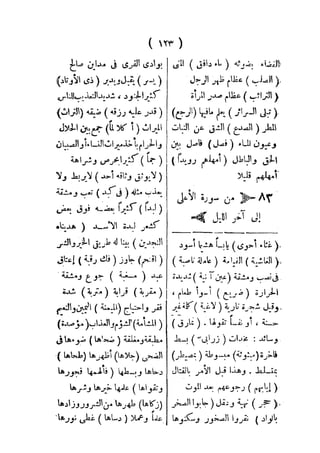 ( ١٢٣ )
بضوئه ( ماء دافق ) المنى
( الصلب ) عظام ظهر الرجل
( الترائب ) عظام صدر المرأة
( تبلى السرائر ) يعلم مافيها (الرجع)
المطر ( الصدع ) الشق عن النبات
وعيون الماء ( فصل ) فاصل بين
الحق والباطل ( أمهلهم رويداً )
أمهلهم قليلا
٨٣ – من سورة الأعلى
إلى آخر الليل
( غثاء أحوى ) يابساً هشيما أسود
( الغاشية ) القيامة ( عاملة ناصبة )
فى نصب ومشقة (عين آنية ) شديدة
الحرارة ( ضريع ) أسوأ طعام ،
وقيل شجرة نارية ( لاغية ) كلمة غير
حسنة ، أو نفساً تقولها . ( نمارق )
وسائد : مخدات ( زرابى ) بسط
فاخرة (مبثوثة) مبسوطة ( بمصيطر )
بمتسلط . وهذا قبل الأمر بالقتال
( إيابهم ) رجوعهم بعد الموت
( حجر ) نهية وعقل ( جابوا الصخر
بالواد ) نقروا الصخور وسكنوها
بوادى القرى فى مداين صالح
( يسر ) يقبل ويدبر ( ذى الأوتاد )
كثير الجنود ، شديد التعذيب للناس
( قدر عليه رزقه ) ضيقه (التراث)
الميراث ( أ كلا لماً ) جمع بين الحلال
والحرام بأخذ ميراث النساء أو الصبيان
( جماً ) كثيراً بحرص وشراهة
( لايوثق وثاقه أحد ) لايربط ولا
يعذب مثله ( فى كبد ) تعب ومشقة
( لبدا ) كثيراً بعضه فوق بعض
كشعر لبدة الأسد ( هديناه
النجدين ) بينا له طريقى الخير والشر
( اقتحم ) جاوز ( فك رقبة ) إعتاق
عبد ( مسغبة ) جوع ومشقة
( مقربة ) قرابة ( متربة ) شدة
فقر واحتياج (الميمنة ) اليمن والنعيم
( المشأمة) الشؤم والعذاب( مؤصدة )
مطبقة ومغلقة ( ضحاها ) ضوءها فى
الضحى (جلاها) أظهرها ( طحاها )
دحاها وبسطها ( فألهمها فجورها
وتقواها ) علمها خيرها وشرها
(زكاها) طهرها من الشرور وزادها
علماً وعملا ( دساها ) غطى نورها